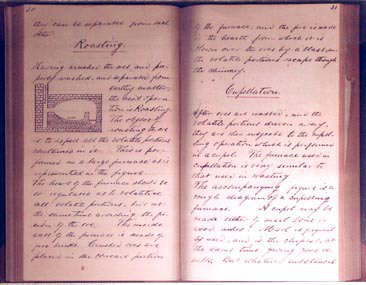 30
they can be separated from each
other
Roasting.
Having crushed the ore and pro-
perly washed, and separated from
earthy matter,
the next opera-
tion is Roasting.
The object of
roasting the ore
is to expel all the volatile portions
contained in it. This is per-
formed in a large furnace as is
represented in the figure.
The heat of the furnace should be
so regulated as to volatilize
all volatile portions, but at
the same time avoiding the fu-
sion of the ore. The inside
of the furnace is made of
fire brick. Crushed ore is
placed in the concave portion
31
of the furnace, and the fire is made
on the hearth from which it is
blown over the ore by a blast, and
the volatile portions escape through
the chimney.
Cupellation.
After ores are roasted, and the
volatile portions driven away,
they are then subjected to the cupel-
ling operation which is performed
in a cupel. The furnace used in
cupellation is very similar to
that used in roasting
The accompanying figure is a
rough diagram of a cupelling
furnace. A cupel may be
made either of marl bone
wood ashes. Marl is generally
used, and is the cheapest, at
the same time giving good re-
sults. But whatever substance